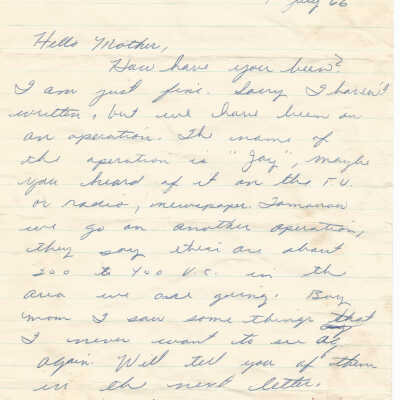 July 66
Hello Mother,
How have you been?
I am just fine. Sorry I haven't
written, but we have been on
an operation. The name of
the operation is "Jay", maybe
you heard of it on the T.V.
or radio, newspaper. Tomorrow
we go on another operation,
they say their are about
200 to 400 V.C. in the
area we are going. Boy
mom I saw some things that
I never want to see
again. Will tell you of them
in the next letter.